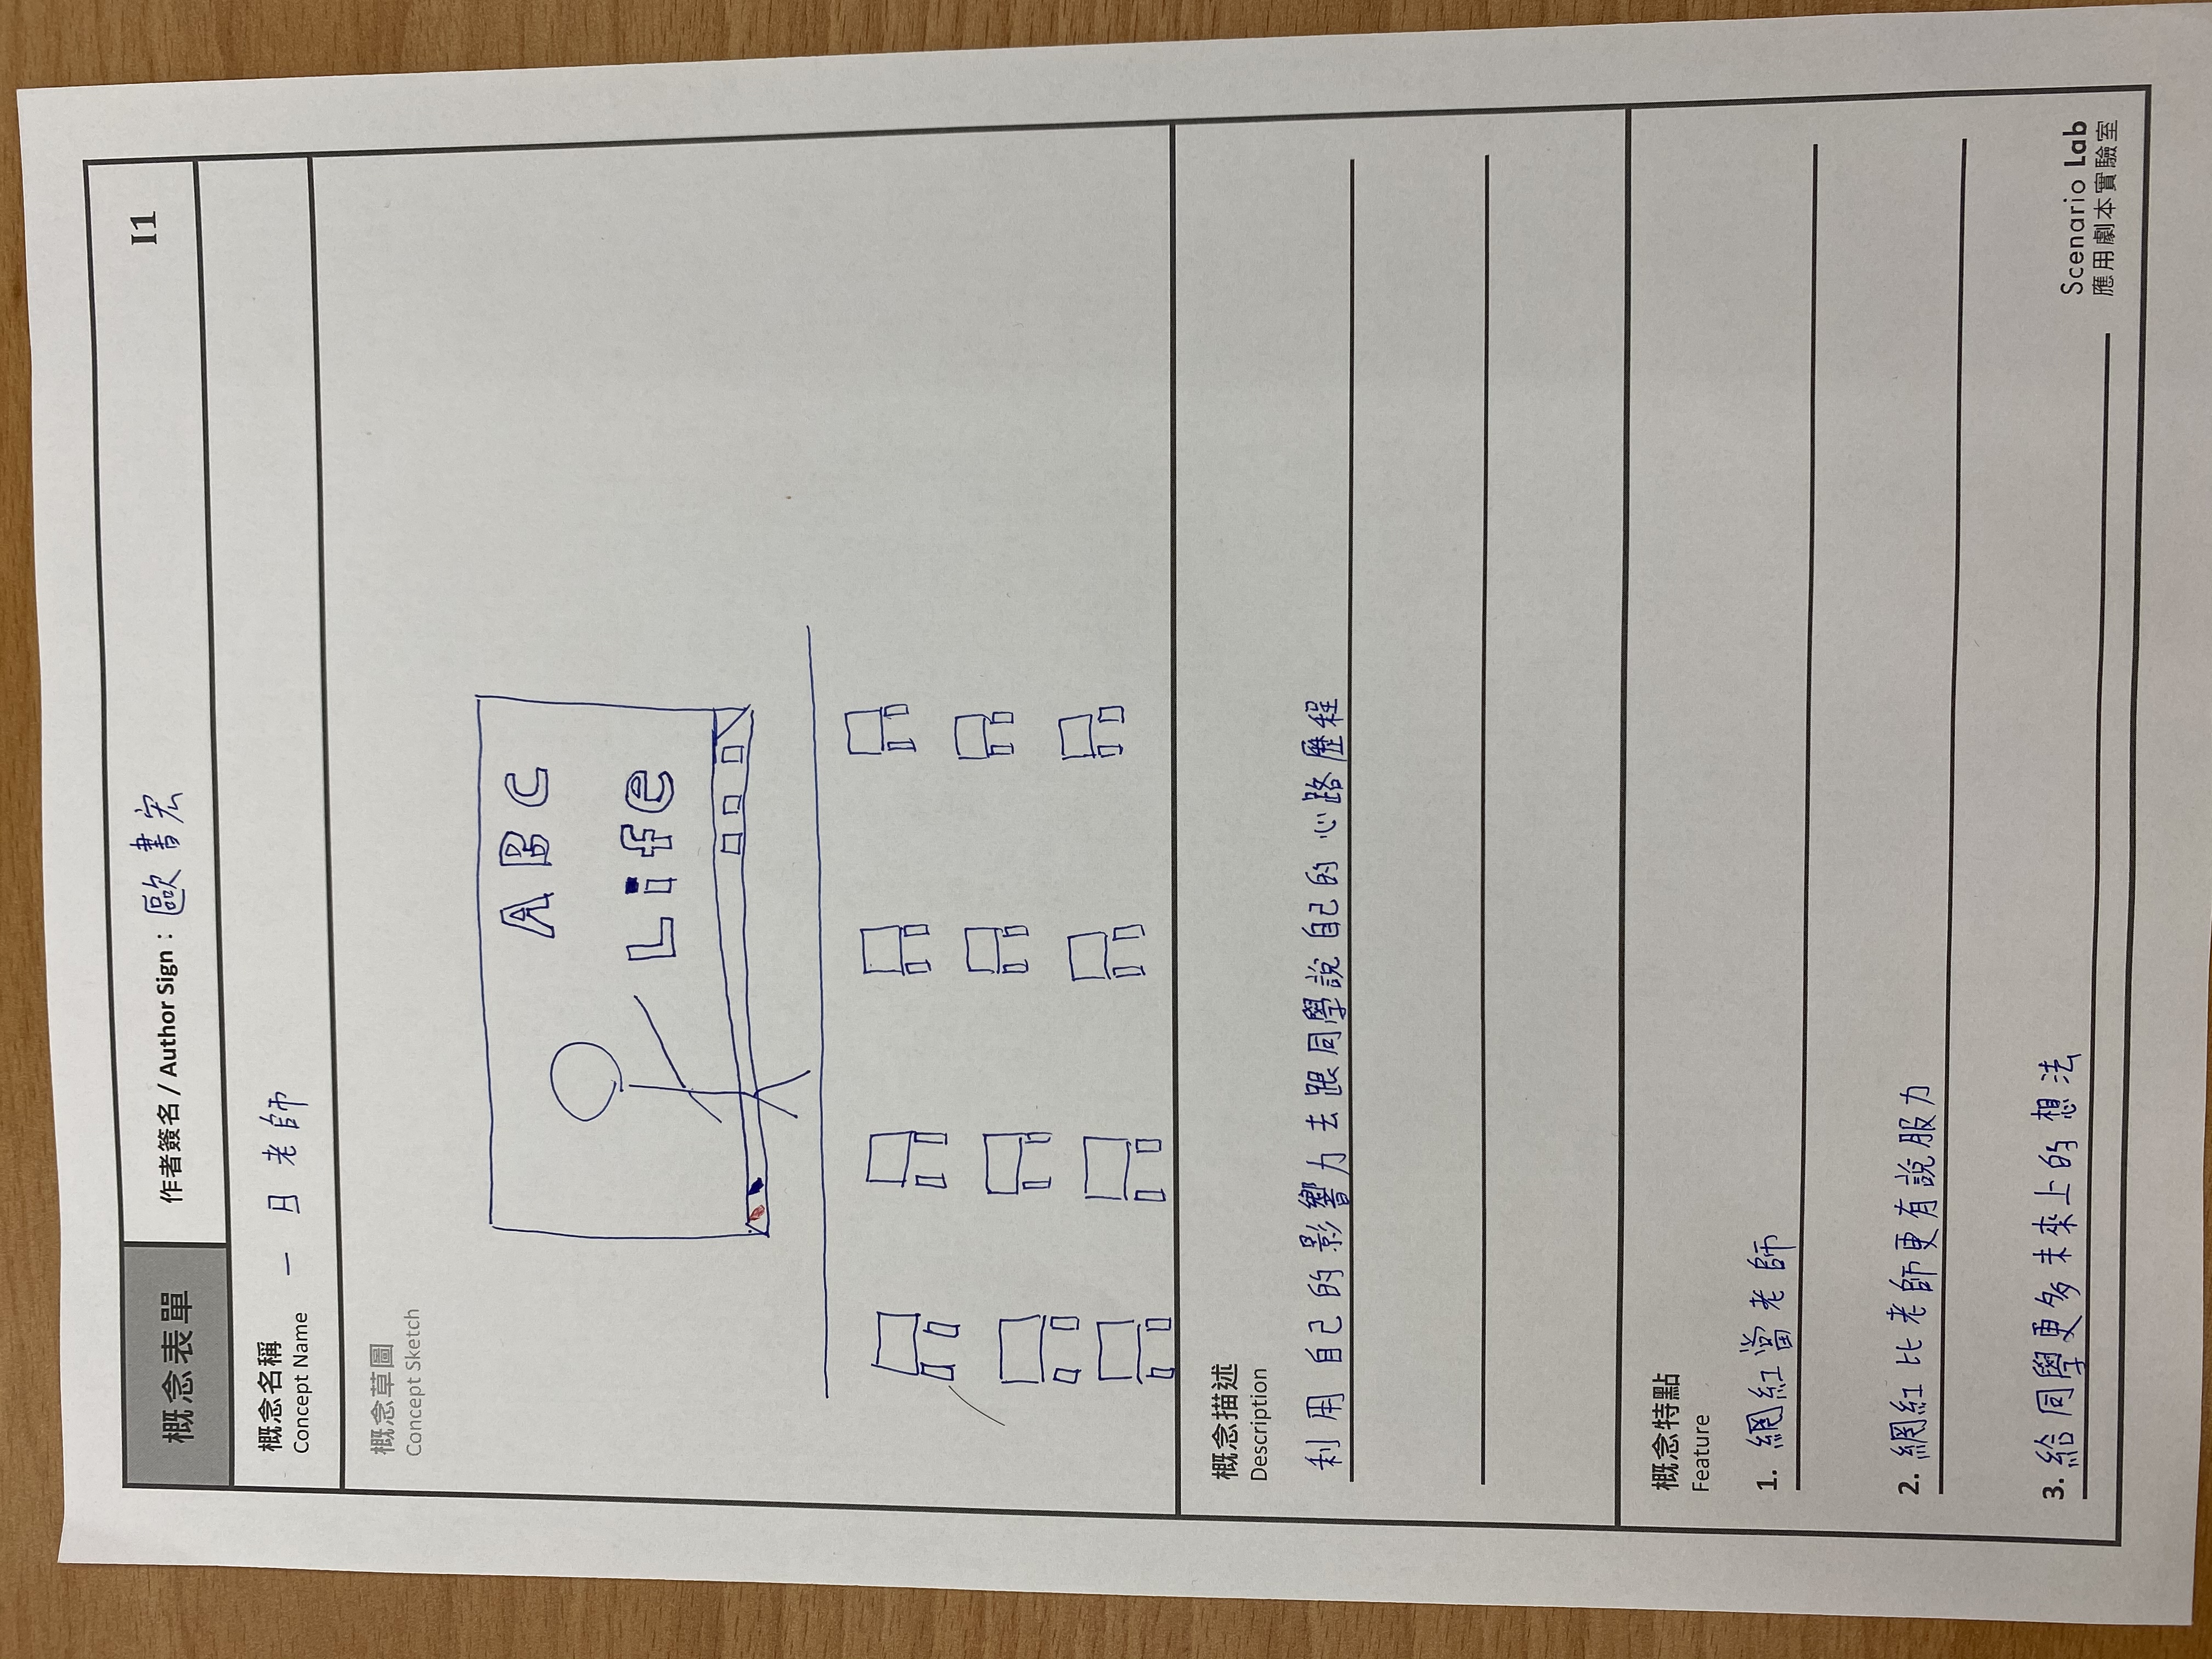 概念表單
作者簽名 / Author Sign： 歐書宏
I1
概念名稱
Concept Name
一日老師
概念草圖
Concept Sketch
A B C
Life
概念描述
Description
利用自己的影響力去跟同學說自己的心路歷程
概念特點
Feature
1. 網紅當老師
2. 網紅比老師更有說服力
3. 給同學更多未來上的想法
Scenario Lab
應用劇本實驗室